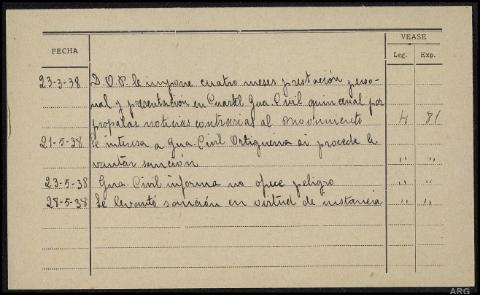 VEASE
FECHA
Leg. Exp.
23-3-38 D.O.P. le impone cuatro meses prestación perso-
nal y presentación en Cuartel Gua Civil quincenal por
propalar noticias contrarias al movimiento H 81
21-5-38 Se intersa a Gua. Civil Ortigueira si procede le
vantar sanción " "
23-5-38 Gua Civil informa no ofece peligro " "
28-5-38 Se levantó sanción en virtud de instancia " "
ARG